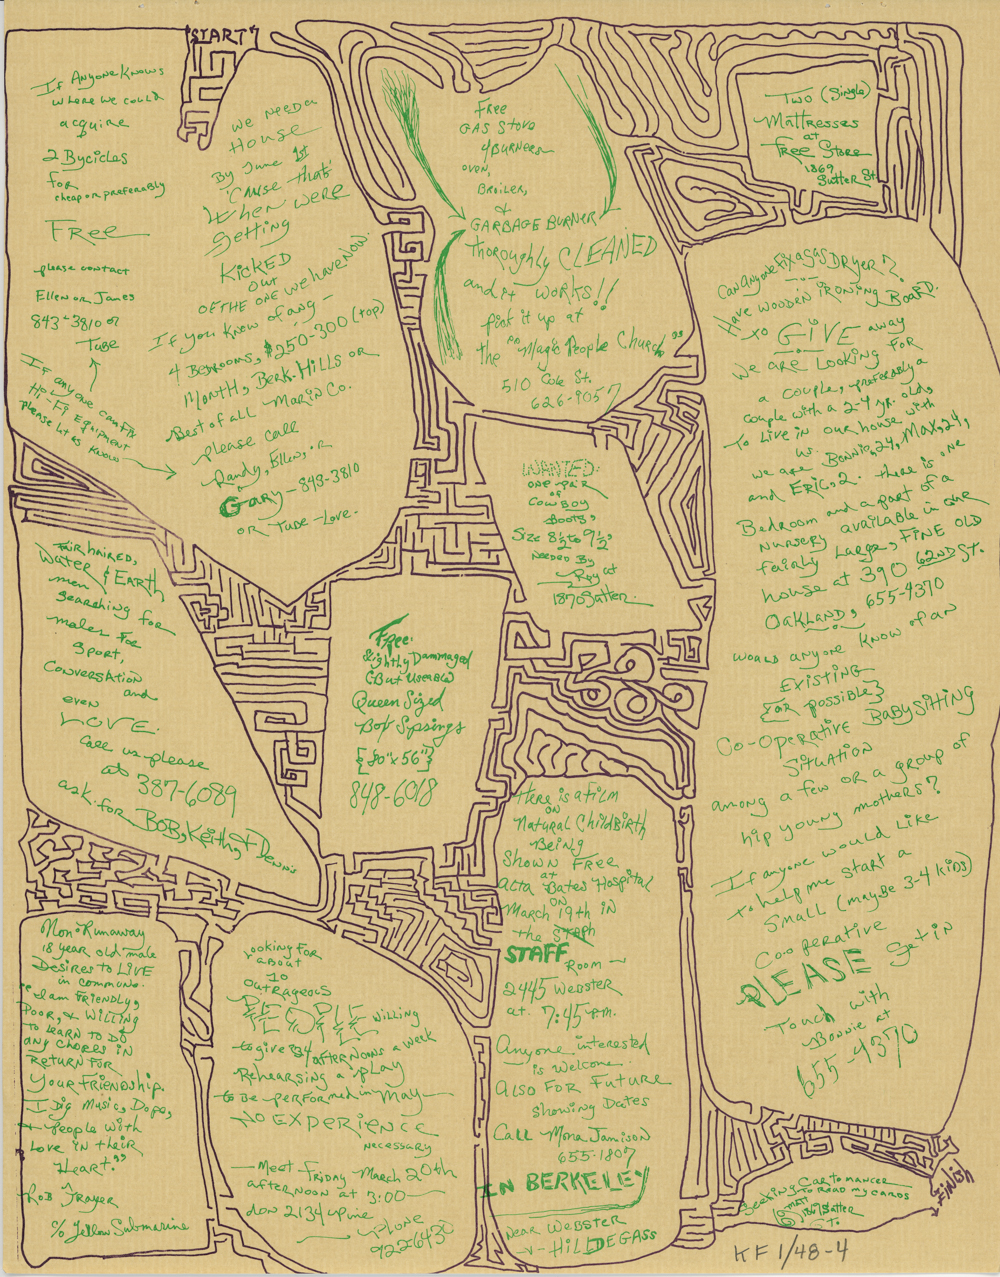 "START"
If Anyone Knows
where we could
acquire
2 Bycicles
for
cheap or preferably
FREE
please contact
Ellen or James
843-3810 or
Tube
If anyone can Fix
Hi-Fi Equipment
please let us
Know
we need a
House
By June 1st
'Cause that's
When were
getting
Kicked
out
OF THE ONE we have Now.
If you know of any -
4 Bedrooms, $250-300 (top)
Month, Berk. Hills or
Best of all Marin Co.
please call
Randy, Ellen, or
Gary - 848-3810
or - Tube - Love.
Free
GAS Stove
4 BURNERS
oven,
Broiler,
&
GARBAGE BURNER
Thoroughly CLEANED
and it WORKS!!
pick it up at
the "Magic People Church"
510 Cole St.
626-9057
Two (single)
Mattresses
at
Free Store
1869
Sutter St.
Can Anyone Fix a GAS DRYER?
Have wooden ironing Board.
to GIVE away
We are Looking For
a couple, preferably a
couple with a 2-4 yr. old,
To Live in our house with
us.
we are Bonnie, 24, MAX, 24,
and ERIC, 2. there is one
Bedroom and a part of a
nursery available in our
fairly Large, FINE OLD
house at 390 62ND ST.
OAKLAND, 655-4370
would anyone Know of an
EXISTING
{or possible}
Co-Operative Babysitting
Situation
among a few or a group of
hip young mothers?
If anyone would Like
to help me start a
Small (maybe 3-4 kids)
Co-operative
PLEASE get in
Touch with
Bonnie at
655-4370
WANTED:
one-pair
of
COWBOY
Boots,
Size 8½ to 9½,
Needed By
Roy at
1870 Sutter.
Fair haired,
Water & Earth
men
Searching for
males For
Sport,
Conversation
and
even
LOVE.
Call us please
at 387-6089
ask for Bob, Keith, & Dennis
Free:
Slightly Dammaged
But useable
Queen Sized
Box Springs
{80"x56"}
848-6018
Here is a film
ON
Natural Childbirth
Being
Shown Free
at
Alta Bates Hospital
ON
March 19th in
the
STAFF
Room -
2445 Webster
at 7:45 P.M.
Anyone interested
is welcome.
Also For Future
Showing Dates
Call Mona Jamison
655-1807
IN BERKELEY
Near Webster
-v- HILLDEGASS
Non-Runaway
18 year old male
Desires to LIVE
in commune.
"I am FRIENDLY,
Poor, & Willing
to learn to do
any chores in
RETURN FOR
Your Friendship.
I Dig Music, Dope,
& People with
Love in their
Heart."
Rob Frayer
c/o Yellow Submarine
Looking For
about
10
outrageous
PEOPLE willing
to give 3/4 afternoons a week
Rehearsing a play
to be performed in May
NO EXPERIENCE
necessary
- Meet Friday March 20th
afternoon at 3:00 -
don 2134 upine
- phone
922-6430
Seeking Car to mancer
to Road my cards
MATT
1869 Sutter
Finish
KF 1/48-4